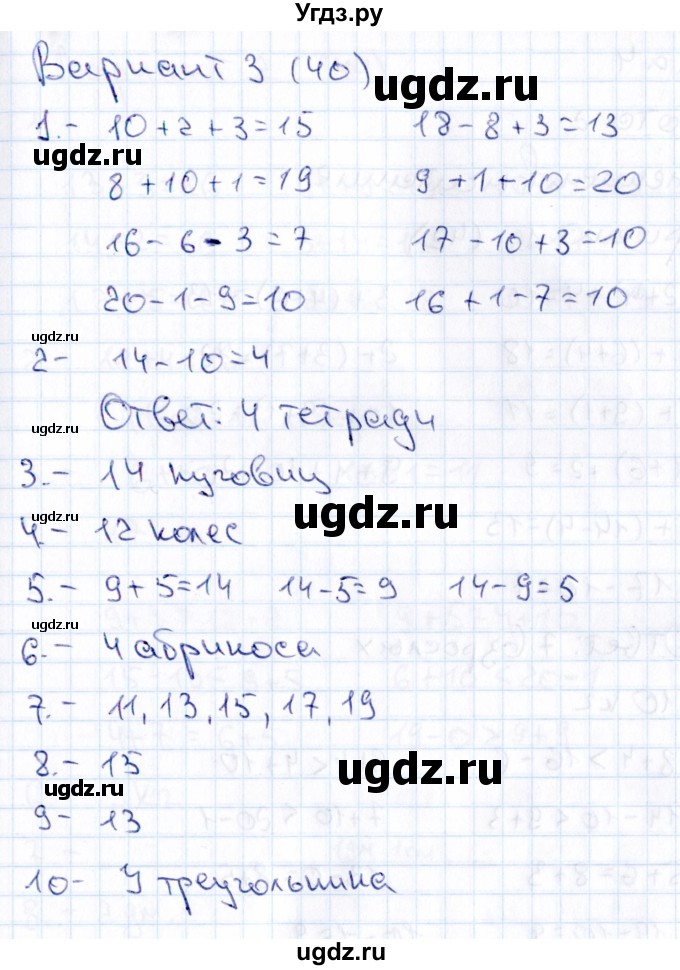 Угдз.ру
Вариант 3 (40)
ugdz.ru
1.- 10+2+3=15 18-8+3=13
ugdz.ru
8+10+1=19 9+1+10=20
16-6-3=7 17-10+3=10
20-1-9=10 16+1-7=10
ugdz.ru
2- 14-10=4
Ответ: 4 тетради
ugdz.ru
3.- 14 пуговиц
ugdz.ru
ugdz.ru
4.- 12 колес
5.- 9+5=14 14-5=9 14-9=5
ugdz.ru
6.- 4 абрикоса
7.- 11, 13, 15, 17, 19
8.- 15
ugdz.ru
ugdz.ru
9- 13
10- 4 треугольника
ugdz.ru